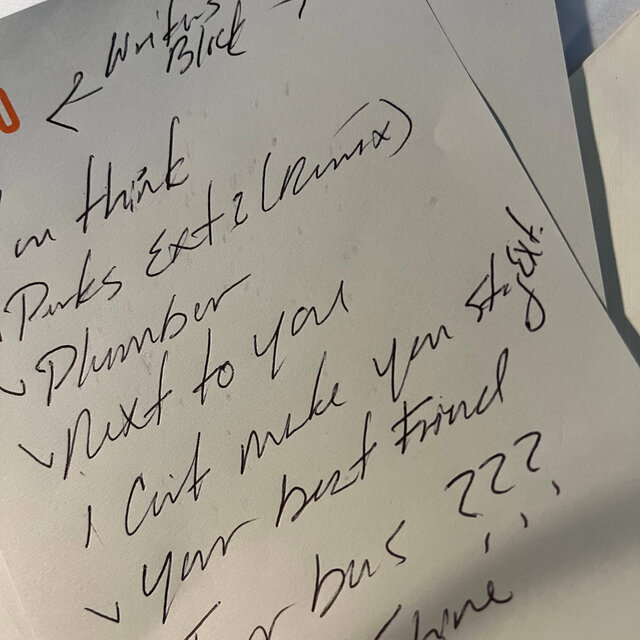 Writers
Block
think
Perks Ext 2 (Remix)
Plumber
Next to you
I Can't make you stay Ext.
Your best Friend
bus ???